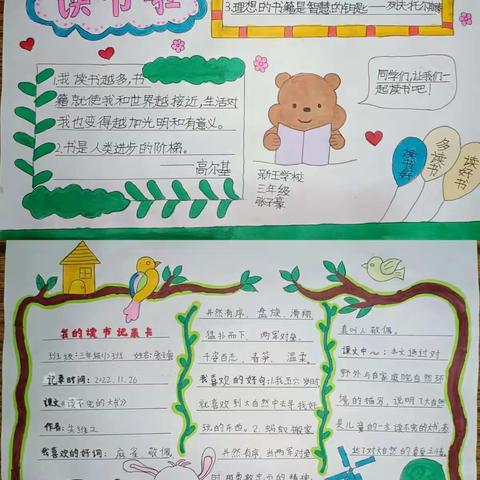 读书
3.理想的书籍是智慧的钥匙——列夫·托尔斯泰
1.我读书越多,书
籍就使我和世界越接近,生活对
我也变得越加光明和有意义。
2.书是人类进步的阶梯。
——高尔基
同学们,让我们一
起读书吧!
新王学校
三年级
读书好
多读书
读好书
我的读书记录卡
班级:三年级小班 姓名:
记录时间:2022.11.26
课文《读不完的大书》
作者:
我喜欢的好词:麻雀、敬佩、
井然有序、盘旋、滑翔
猛扑而下、两军对垒、
千姿百态、春笋、温柔。
我喜欢的好句:1.我五六岁时
就喜欢到大自然中去寻找好
玩的东西。2.蚂蚁搬家
井然有序,当两军对垒
时,那勇敢
的精神,
真叫人敬佩。
课文中
野外与自家庭院自然环
境的描写,说明了大自然
是儿童的一本读不完的大书,表
达了对大自然的喜爱之情。